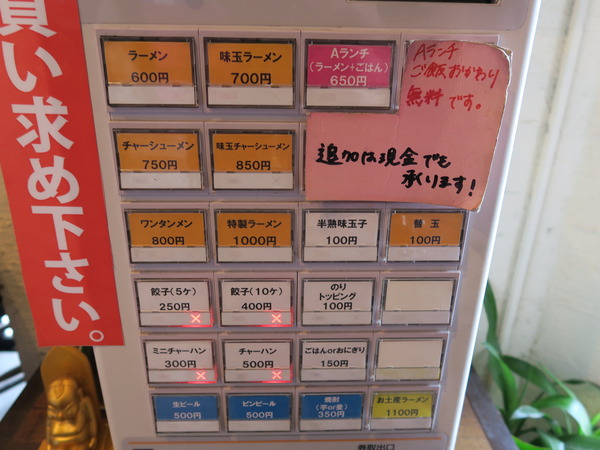 買い求め下さい。
ラーメン
600円
味玉ラーメン
700円
Aランチ
(ラーメン+ごはん)
650円
Aランチ
ご飯おかわり
無料です。
チャーシューメン
750円
味玉チャーシューメン
850円
追加は現金でも
承ります!
ワンタンメン
800円
特製ラーメン
1000円
半熟味玉子
100円
替玉
100円
餃子(5ケ)
250円
餃子(10ケ)
400円
のり
トッピング
100円
ミニチャーハン
300円
チャーハン
500円
ごはんorおにぎり
150円
生ビール
500円
ビンビール
500円
焼酎
(芋or麦)
350円
お土産ラーメン
1100円
券取出口